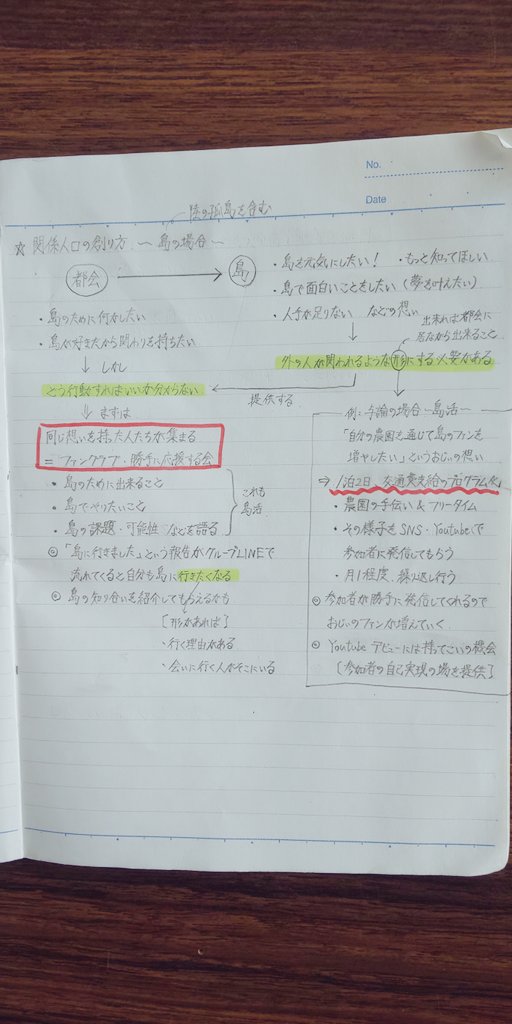 No.
Date
陸の孤島を含む
☆ 関係人口の創り方 〜島の場合〜
都会
島
・島のために何かしたい
・島が好きだから関わりを持ちたい
↓ しかし
どう行動すればいいか分からない
↓ まずは
同じ想いを持った人たちが集まる
=「ファンクラブ」勝手に応援する会
・島のために出来ること
・島でやりたいこと
・島の課題・可能性 などを語る
これも
島活
◎「島に行きました」という報告がグループLINEで
流れてくると自分も島に行きたくなる
◎ 島の知り合いを紹介してもらえるかも
[形があれば]
・行く理由がある
・会いに行く人がそこにいる
・島を元気にしたい! ・もっと知ってほしい
・島で面白いことをしたい (夢を叶えたい)
・人手が足りない などの想い
出来れば都会に
居ながら出来ること
外の人が関われるような形にする必要がある
提供する
例:与論の場合 〜島活〜
「自分の農園を通じて島のファンを
増やしたい」というおじぃの想い
⇒ 1泊2日、交通費支給のプログラム化
・農園の手伝い & フリータイム
・その様子をSNS・Youtubeで
参加者に発信してもらう
・月1程度、繰り返し行う
◎ 参加者が勝手に発信してくれるので
おじぃのファンが増えていく
◎ Youtubeデビューには持ってこいの機会
[参加者の自己実現の場を提供]